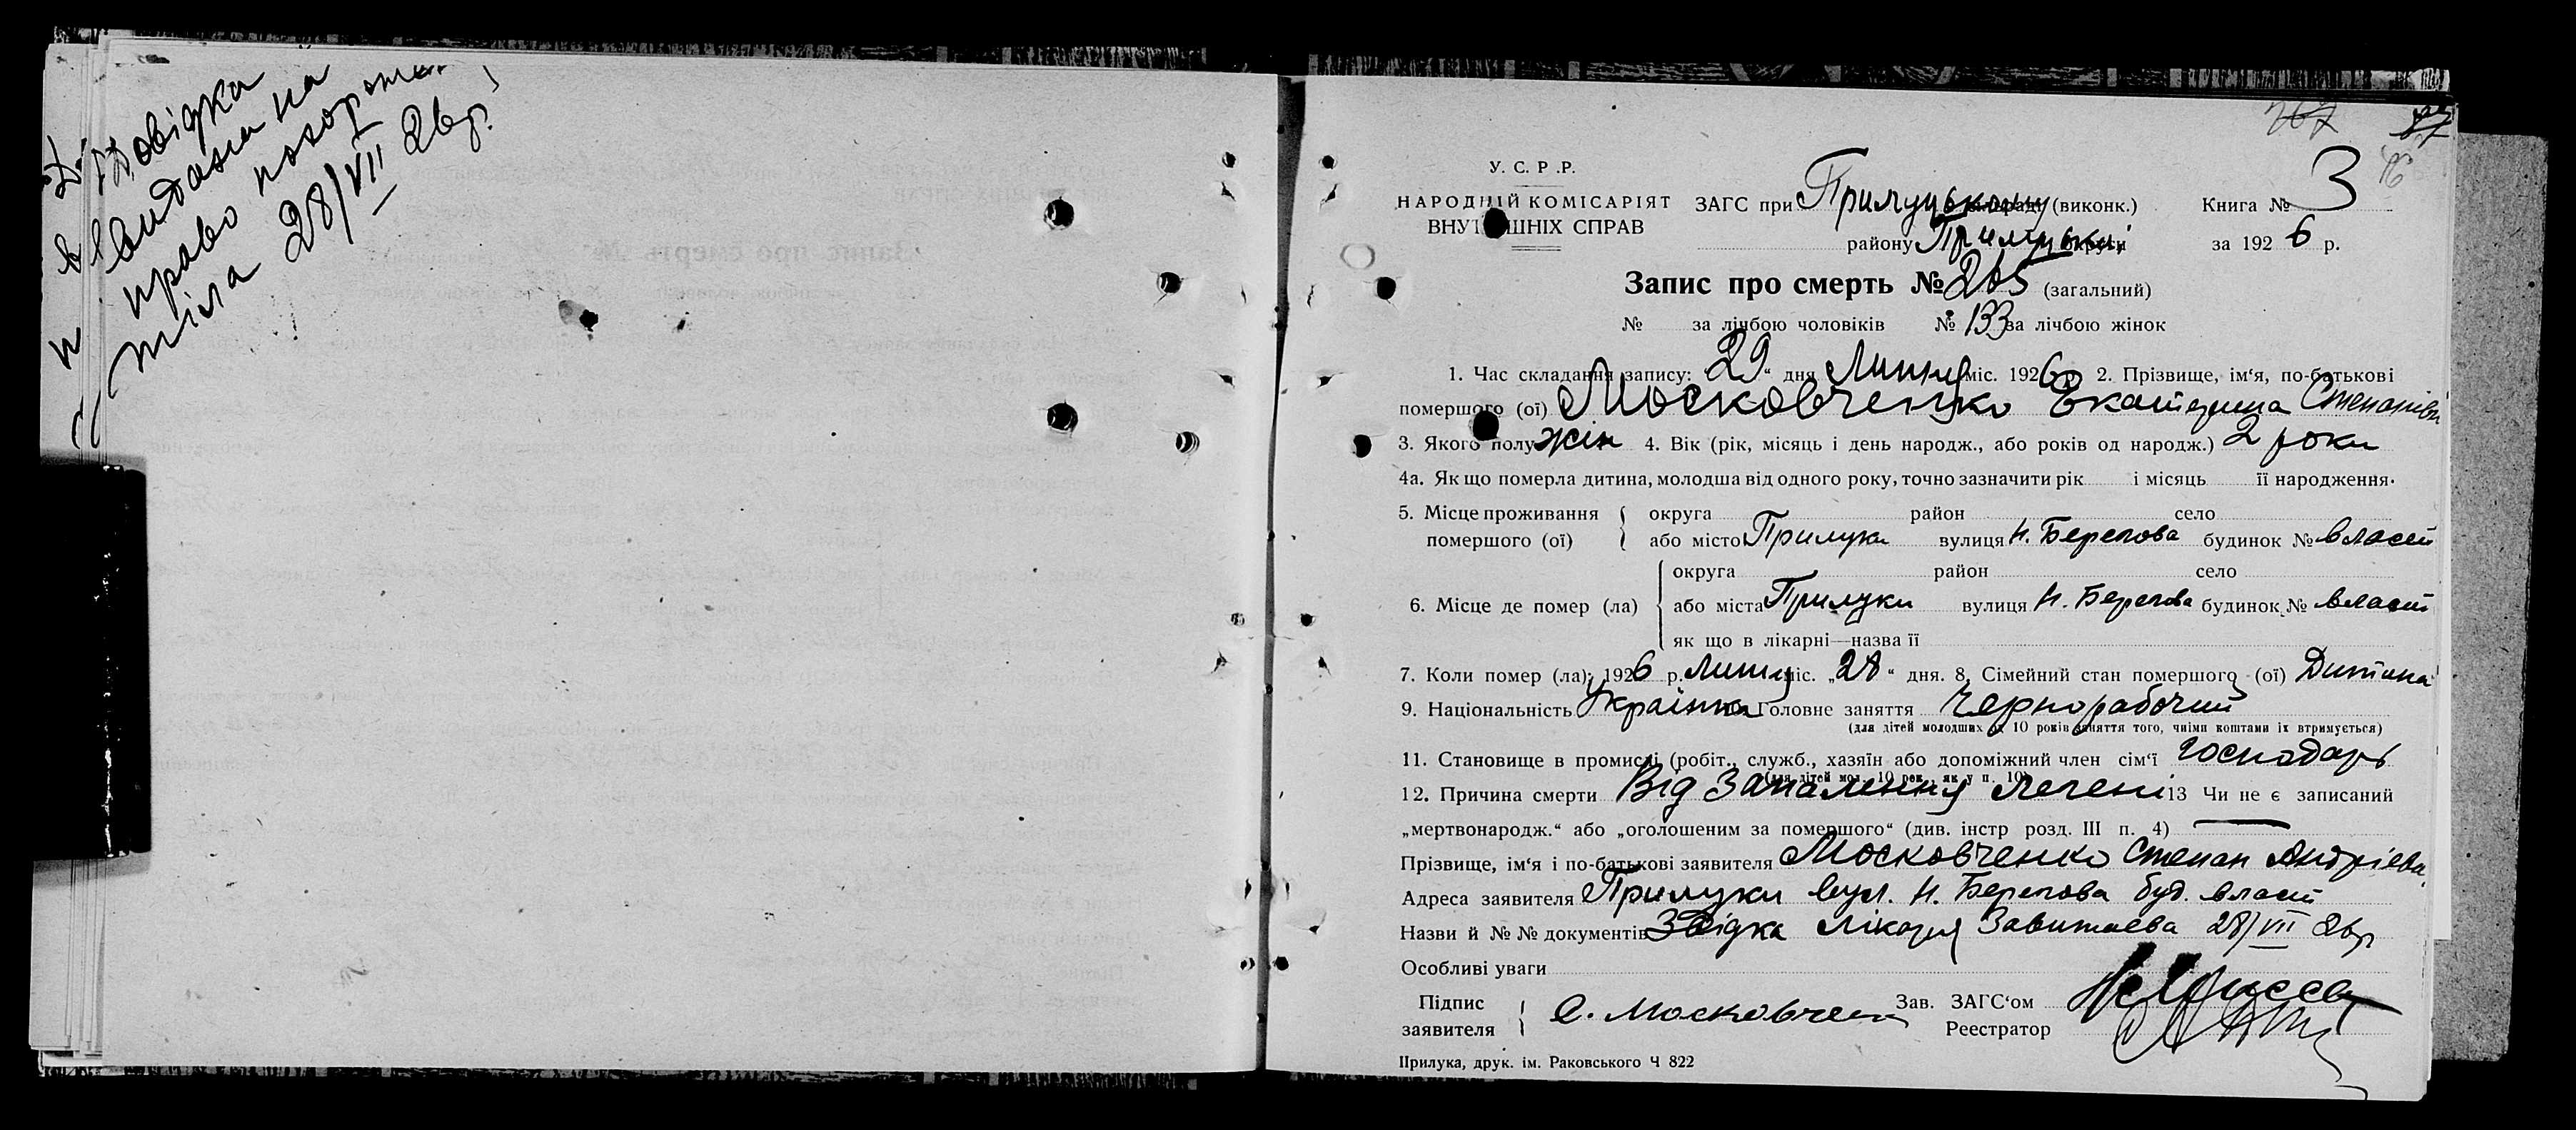 Довідка
видана на
право похорон
тіла 28/VII 26р.
3
У. С. Р. Р.
НАРОДНІЙ КОМІСАРІЯТ ЗАГС при Прилуцькому (виконк.) Книга №
ВНУТРІШНІХ СПРАВ району Прилуцькі округи за 1926 р.
Запис про смерть № 265 (загальний)
№ за лічбою чоловіків № 133 за лічбою жінок
1. Час складання запису: 29 “ дня Липня міс. 1926 р. 2. Прізвище, ім‘я, по-батькові
помершого (ої) Московченко Екатерина Степанівн
3. Якого полу жін 4. Вік (рік, місяць і день народж., або років од народж.) 2 роки
4а. Як що померла дитина, молодша від одного року, точно зазначити рік і місяць її народження.
5. Місце проживання { округа район село
помершого (ої) або місто Прилуки вулиця Н. Берегова будинок № власн
округа район село
6. Місце де помер (ла) { або міста Прилуки вулиця Н. Берегова будинок № власн
як що в лікарні—назва її
7. Коли помер (ла): 1926 р. Липня міс. „28“ дня. 8. Сімейний стан помершого (ої) Дитина
9. Національність Українка Головне заняття Чернорабочий
(для дітей молодших од 10 років заняття того, чиїми коштами їх втримується)
11. Становище в промислі (робіт., служб., хазяїн або допоміжний член сім‘ї господарь
(для дітей мол. 10 рок., як у п. 10)
12. Причина смерти Від Запалення легені 13 Чи не є записаний
„мертвонародж.“ або „оголошеним за помершого“ (див. інстр розд. III п. 4) —
Прізвище, ім‘я і по-батькові заявителя Московченко Степан Андріева
Адреса заявителя Прилуки вул. Н. Берегова буд. власн
Назви й №№ документів Звідка лікаря 28/VII 26р
Особливі уваги
Підпис Зав. ЗАГС‘ом
заявителя { С. Московчен Реестратор
Прилука, друк. ім. Раковського Ч 822